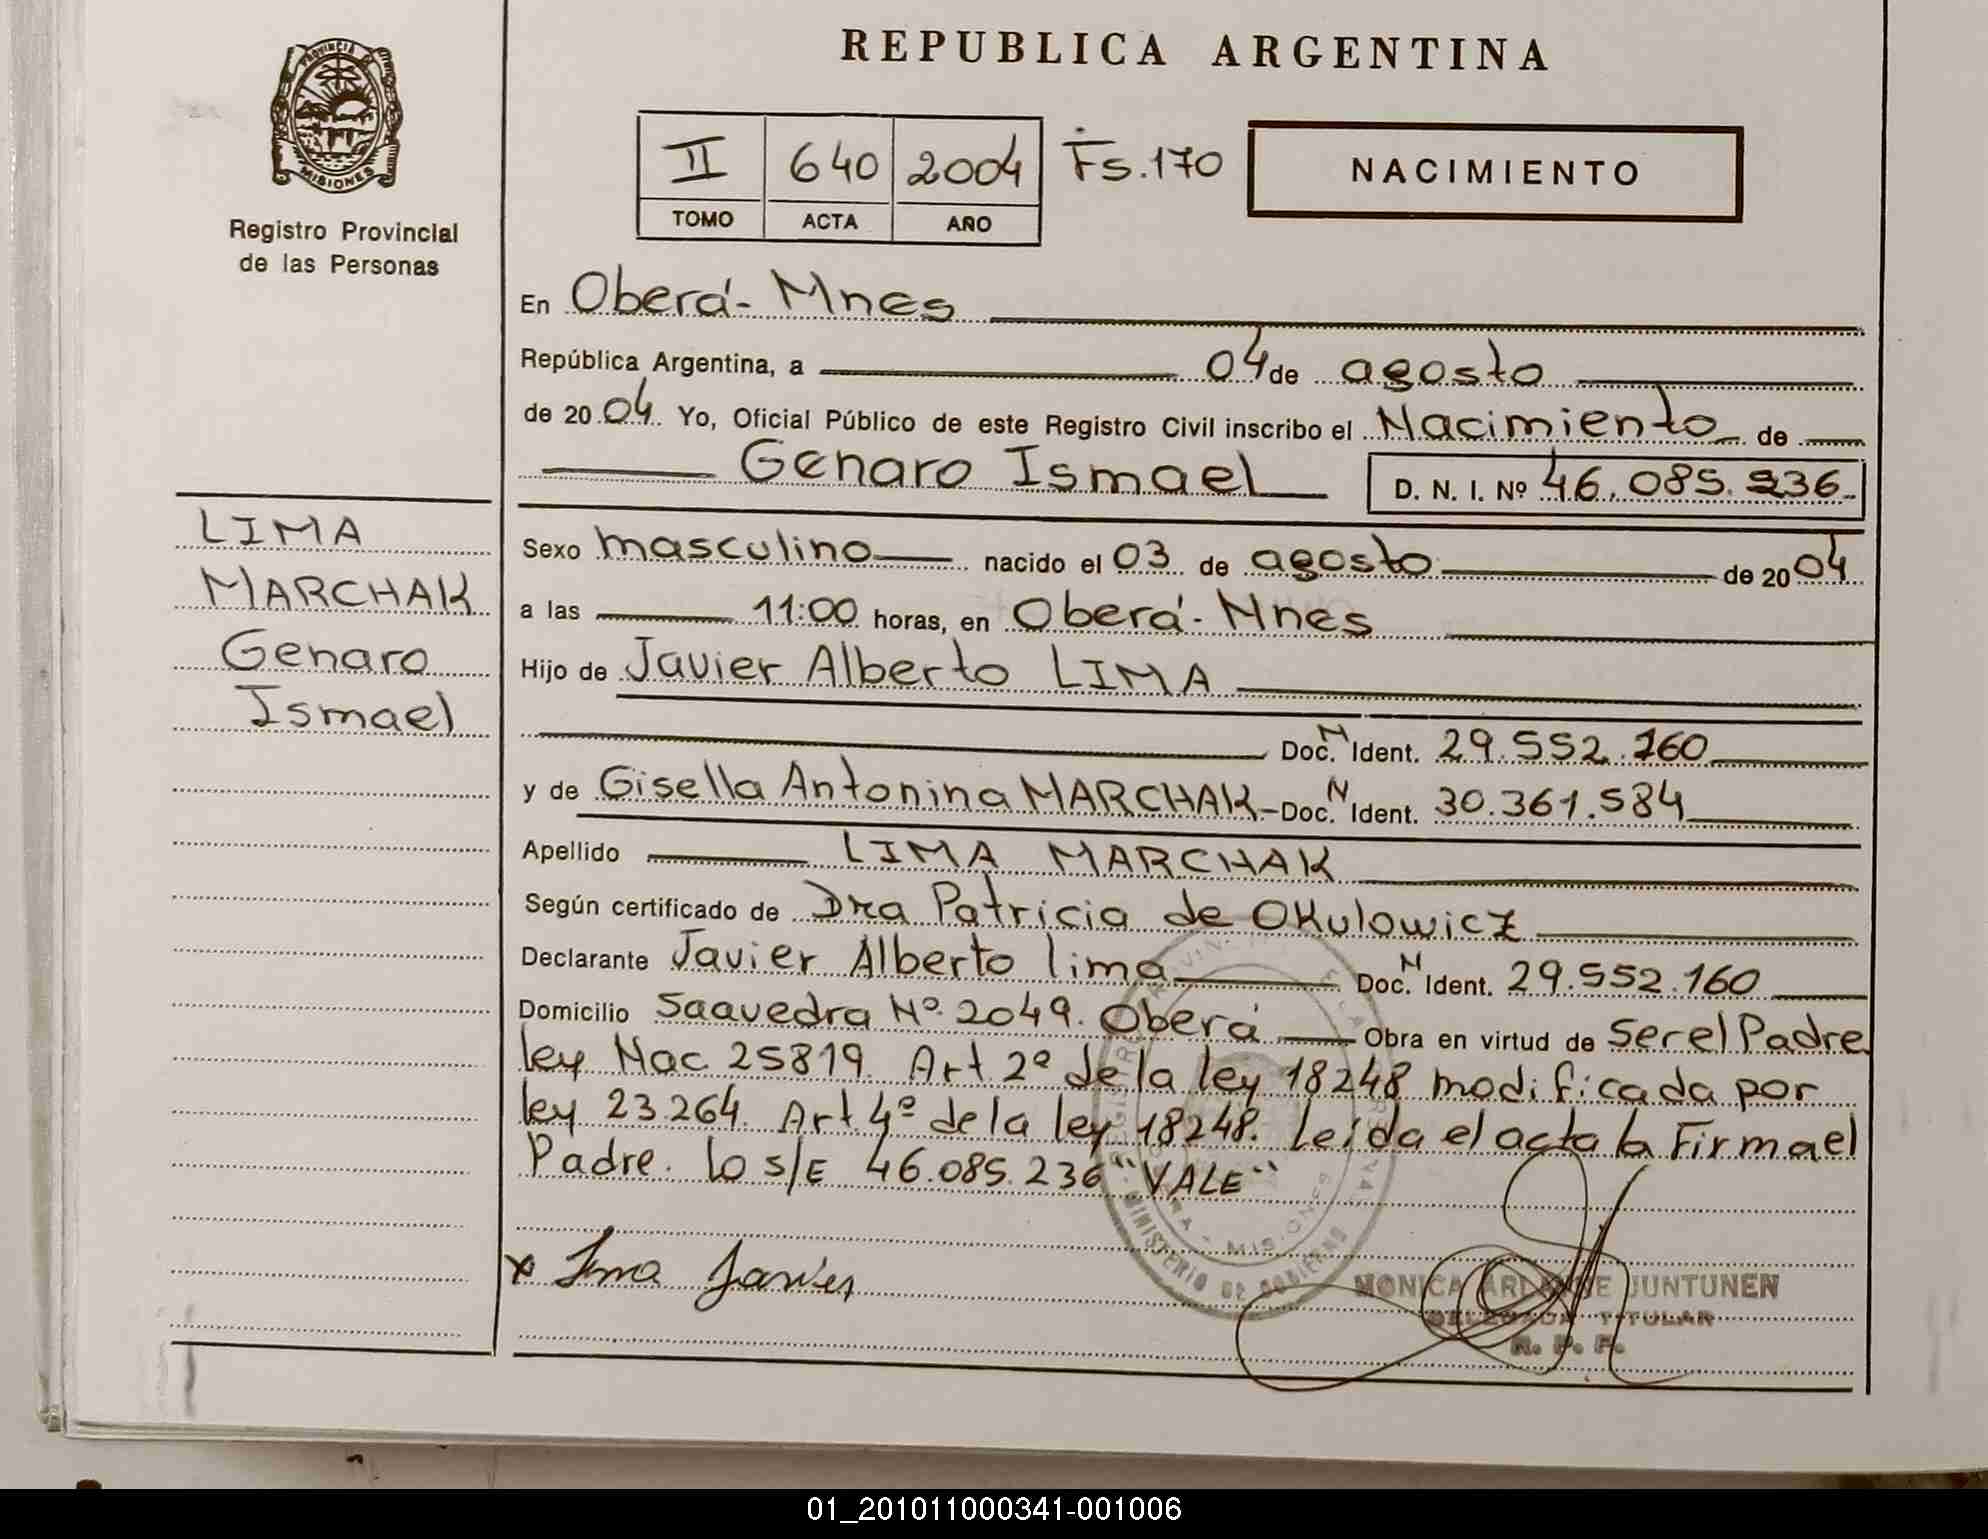 REPUBLICA ARGENTINA
PROVINCIA
MISIONES
Registro Provincial
de las Personas
II 640 2004 Fs.170
TOMO ACTA AÑO
NACIMIENTO
En Oberá - Mnes
República Argentina, a 04 de agosto
de 2004. Yo, Oficial Público de este Registro Civil inscribo el Nacimiento de
Genaro Ismael D. N. I. Nº 46.085.236
LIMA
MARCHAK
Genaro
Ismael
Sexo masculino nacido el 03 de agosto de 2004
a las 11:00 horas, en Oberá - Mnes
Hijo de Javier Alberto LIMA
Doc. N Ident. 29.552.160
y de Gisella Antonina MARCHAK - Doc. N Ident. 30.361.584
Apellido LIMA MARCHAK
Según certificado de Dra Patricia de Okulowicz
Declarante Javier Alberto lima Doc. N Ident. 29.552.160
Domicilio Saavedra Nº 2049. Oberá Obra en virtud de Ser el Padre
ley Nac 25819. Art 2º de la ley 18248 modificada por
ley 23.264. Art 4º de la ley 18248. Leída el acta la Firma el
Padre. lo s/E 46.085.236 "VALE"
x Lima Javier
MINISTERIO DE GOBIERNO
MISIONES
MONICA ARLANE JUNTUNEN
DELEGADA TITULAR
R. P. P.
01_201011000341-001006